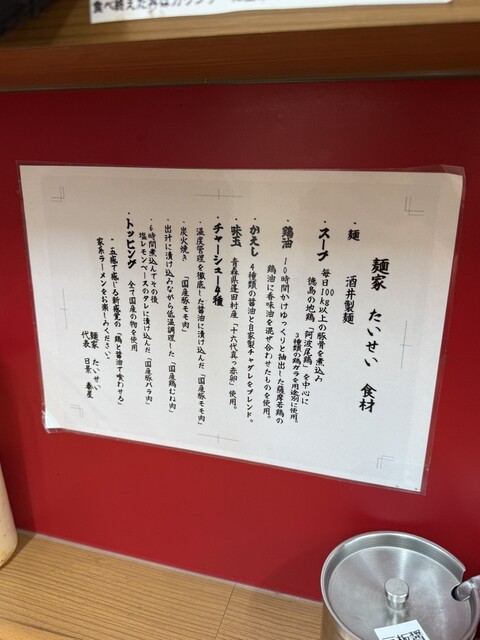 麺家 たいせい 食材
・麺 酒井製麺
・スープ 毎日100kg以上の豚骨を煮込み
徳島の地鶏「阿波尾鶏」を中心に
3種類の鶏ガラを用途別に使用。
・鶏油 10時間かけゆっくりと抽出した薩摩若鶏の
鶏油に香味油を混ぜ合わせたものを使用。
・かえし 4種類の醤油と自家製チャグレをブレンド。
・味玉 青森県蓬田村産「十六代真っ赤卵」使用。
・チャーシュー4種
・温度管理を徹底した醤油に漬け込んだ「国産豚モモ肉」
・炭火焼き「国産豚モモ肉」
・出汁に漬け込みながら低温調理した「国産鶏むね肉」
・6時間煮込んでその後
塩レモンベースのタレに漬け込んだ「国産豚バラ肉」
・トッピング 全て国産の物を使用
・五感で感じる新感覚の「鶏と醤油で味わせる」
家系ラーメンをお楽しみください。
麺家 たいせい
代表 日景